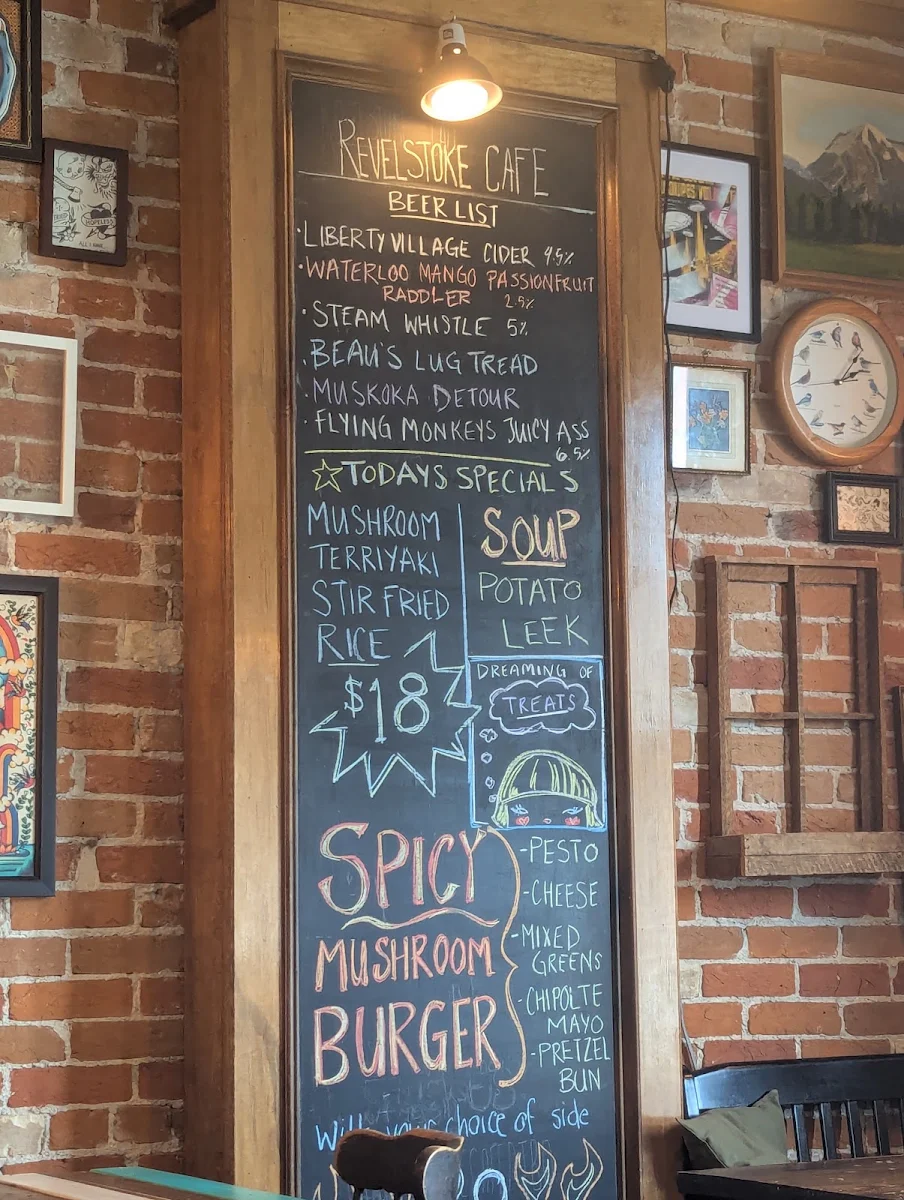 REVELSTOKE CAFE
BEER LIST
·LIBERTY VILLAGE CIDER 4.5%
·WATERLOO MANGO PASSIONFRUIT
RADDLER 2.5%
·STEAM WHISTLE 5%
·BEAU'S LUG TREAD
·MUSKOKA DETOUR
·FLYING MONKEYS JUICY ASS
6.5%
☆TODAYS SPECIALS
MUSHROOM
TERRIYAKI
STIR FRIED
RICE
$18
SOUP
POTATO
LEEK
DREAMING OF
TREATS
SPICY
MUSHROOM
BURGER
-PESTO
-CHEESE
-MIXED
GREENS
-CHIPOLTE
MAYO
-PRETZEL
BUN
With your choice of side
HOPELESS